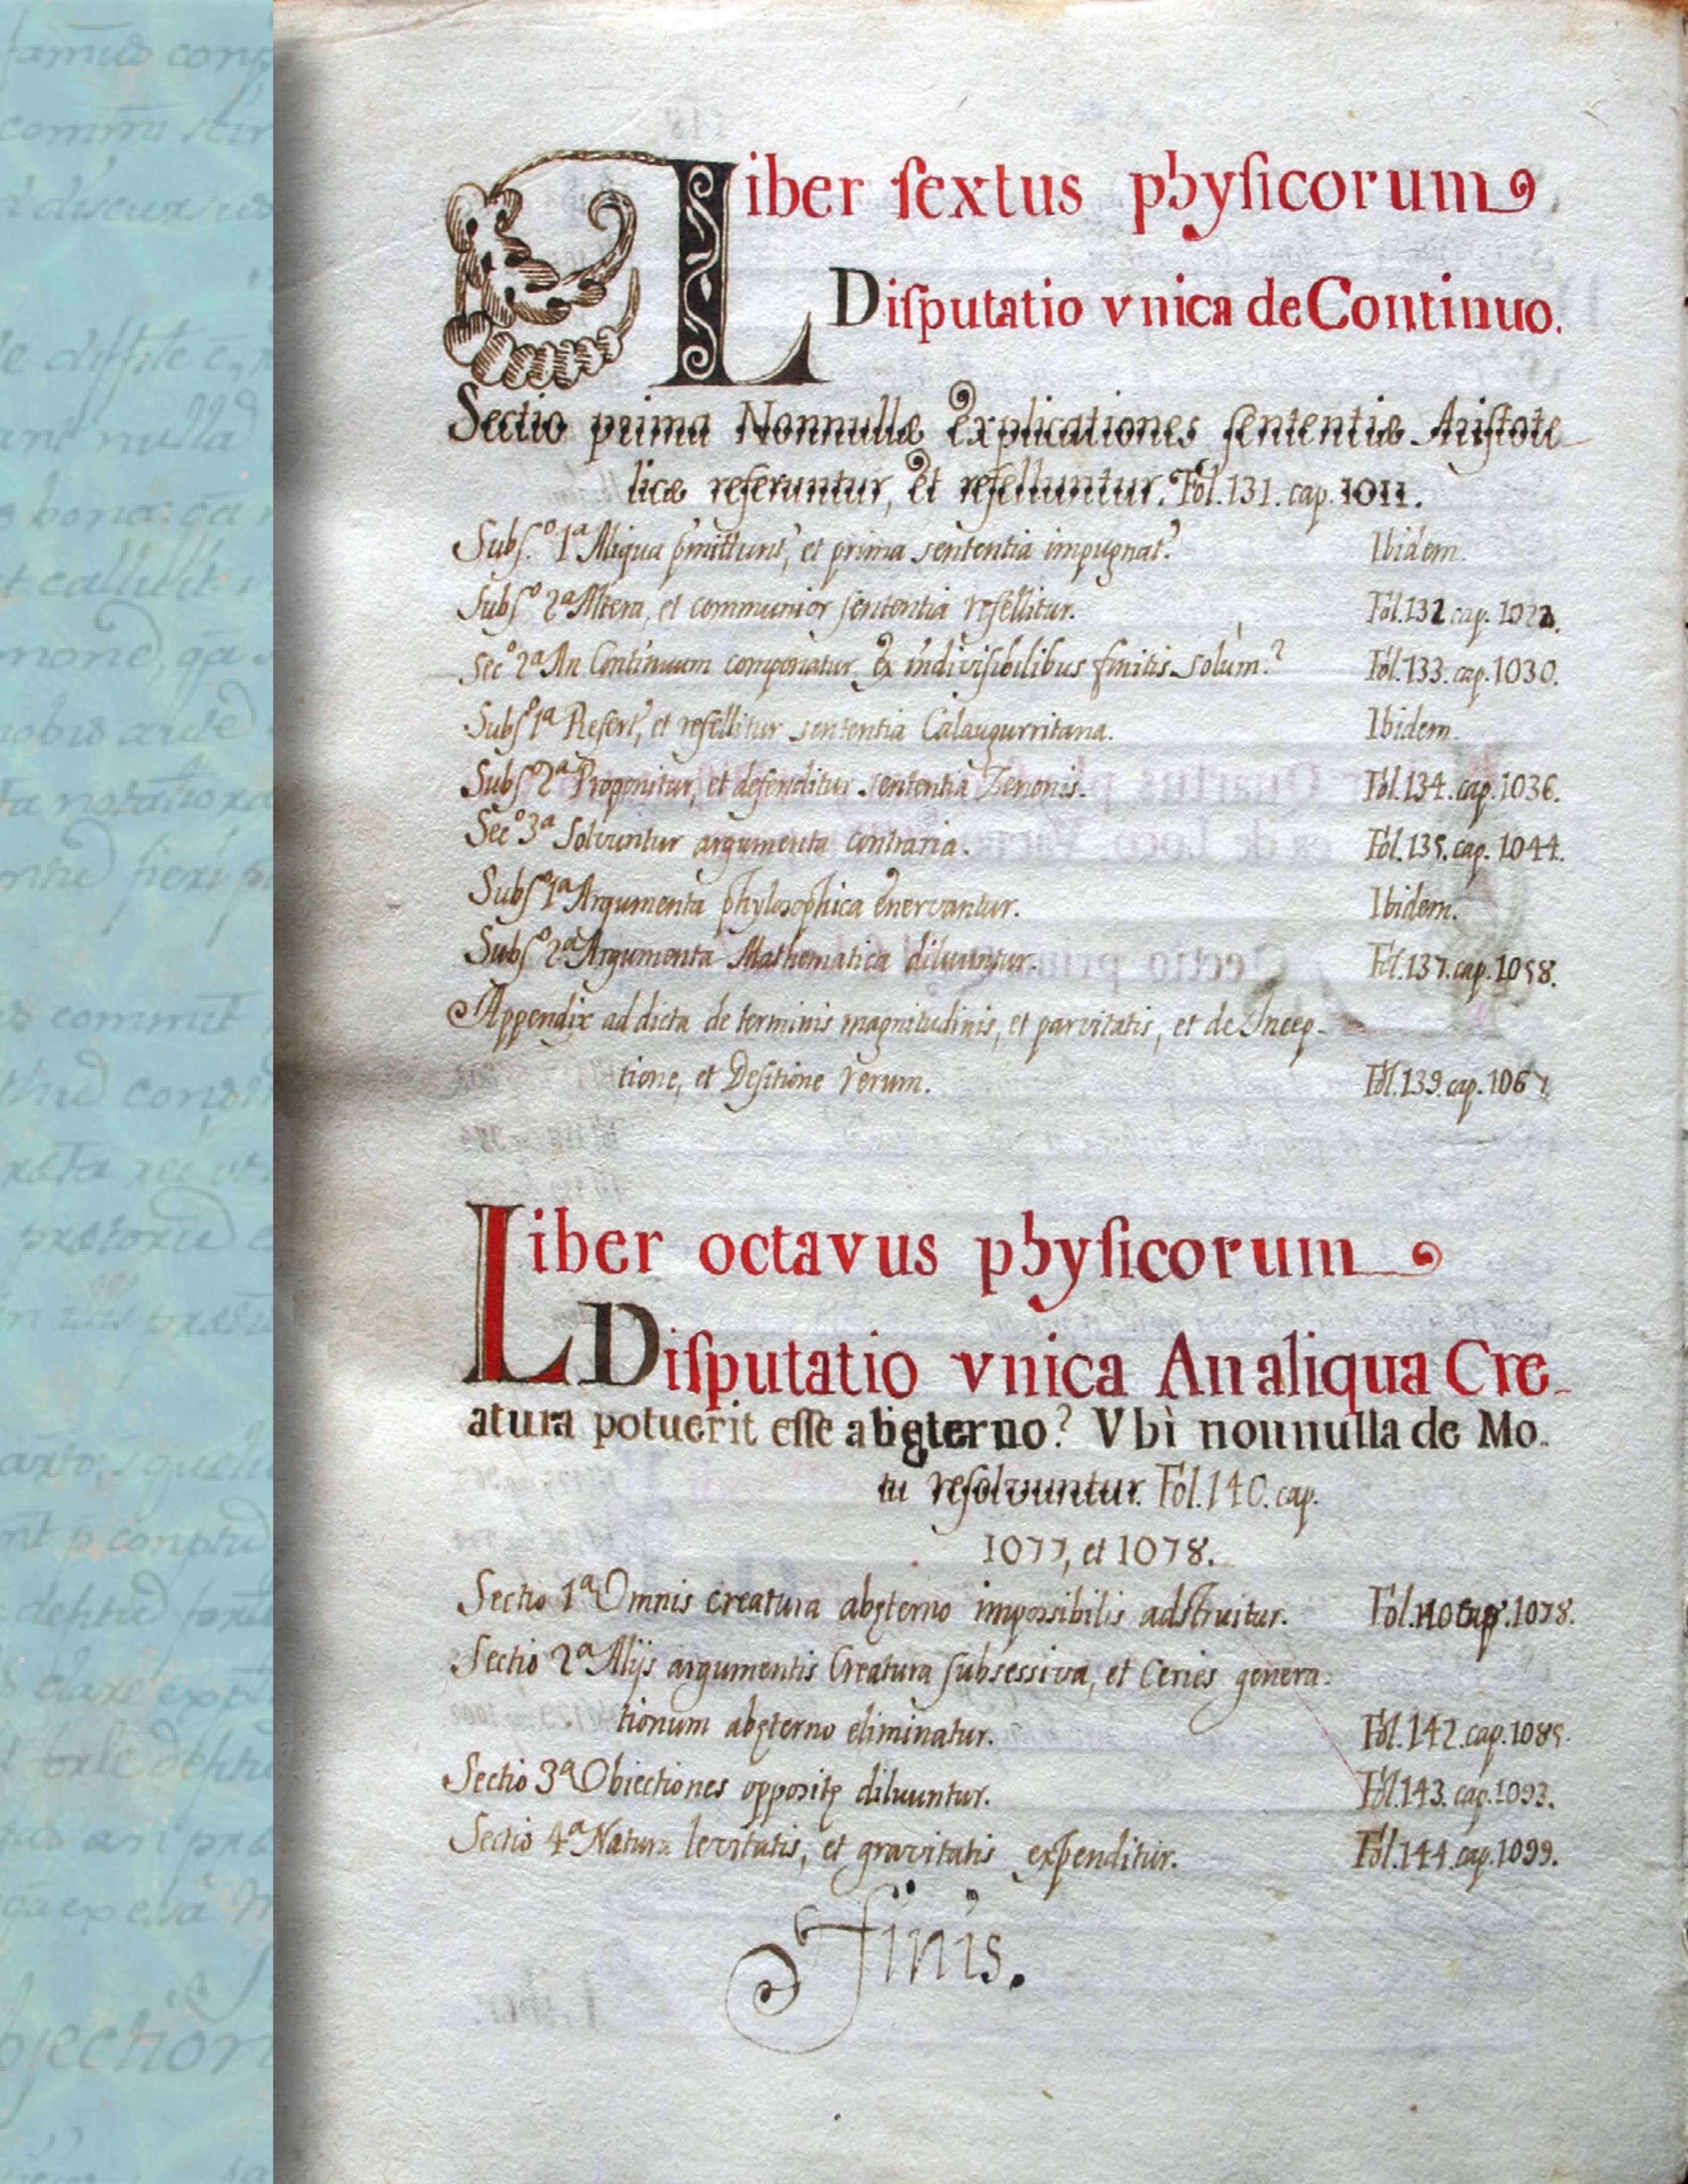 Liber sextus physicorum
Disputatio vnica de Continuo.
Sectio prima Nonnullæ Explicationes sententiæ Aristote
licæ referuntur, et refelluntur. Fol. 131. cap. 1011.
Subs.º 1ª Aliqua p̃mittunt', et prima sententia impugnat'. Ibidem.
Subsº 2ª Altera, et communior sententia refellitur. Fol. 132 cap. 1022.
Secº 2ª An Continuum componatur ex indivisibilibus finitis solùm? Fol. 133. cap. 1030.
Subsº 1ª Refert', et refellitur sententia Calaugurritana. Ibidem.
Subsº 2ª Proponitur, et defenditur sententia Zenonis. Fol. 134. cap. 1036.
Secº 3ª Solvuntur argumenta contraria. Fol. 135. cap. 1044.
Subsº 1ª Argumenta phylosophica enervantur. Ibidem.
Subsº 2ª Argumenta Mathematica diluuntur. Fol. 137. cap. 1058.
Appendix ad dicta de terminis magnitudinis, et parvitatis, et de Incep-
tione, et Desitione rerum. Fol. 139. cap. 1067.
Liber octavus physicorum
Disputatio vnica An aliqua Cre-
atura potuerit esse abęterno? Vbì nonnulla de Mo-
tu resolvuntur. Fol. 140. cap.
1077, et 1078.
Sectio 1ª Omnis creatura abęterno impossibilis adstruitur. Fol. 140 cap. 1078.
Sectio 2ª Alijs argumentis Creatura subsessiva, et Ceries genera-
tionum abęterno eliminatur. Fol. 142. cap. 1085.
Sectio 3ª Obiectiones oppositę diluuntur. Fol. 143. cap. 1093.
Sectio 4ª Natura levitatis, et gravitatis expenditur. Fol. 144. cap. 1099.
Finis.